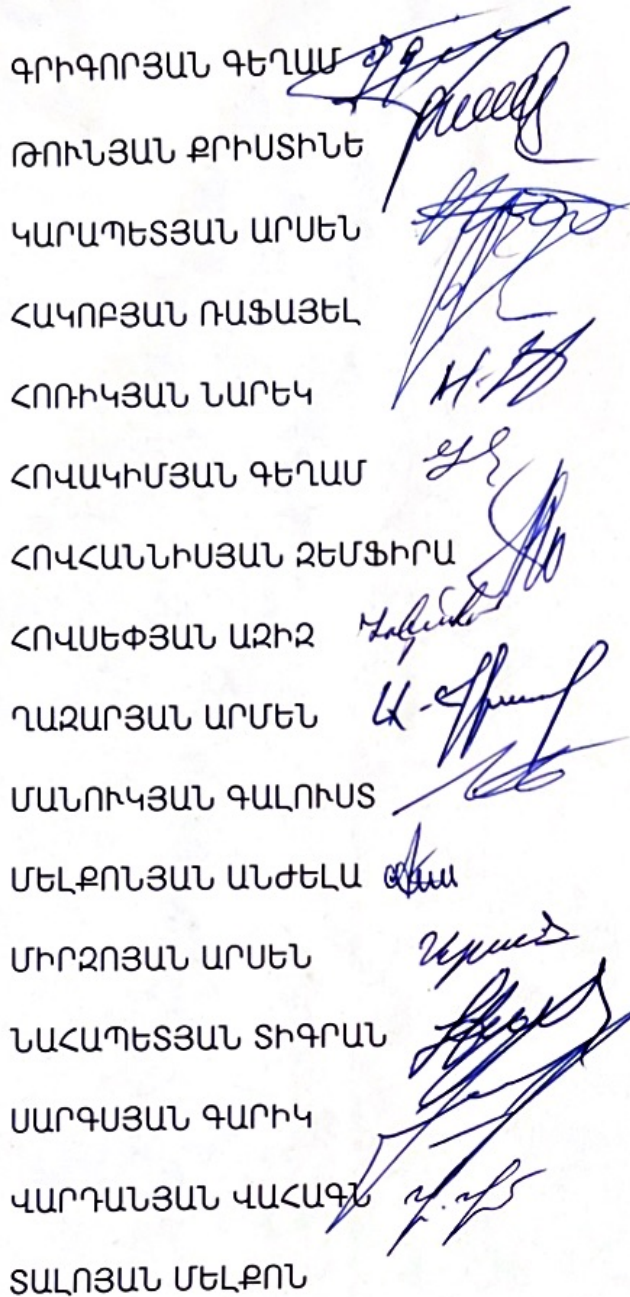 ԳՐԻԳՈՐՅԱՆ ԳԵՂԱՄ
ԹՈՒՆՅԱՆ ՔՐԻՍՏԻՆԵ
ԿԱՐԱՊԵՏՅԱՆ ԱՐՍԵՆ
ՀԱԿՈԲՅԱՆ ՌԱՖԱՅԵԼ
ՀՈՌԻԿՅԱՆ ՆԱՐԵԿ
ՀՈՎԱԿԻՄՅԱՆ ԳԵՂԱՄ
ՀՈՎՀԱՆՆԻՍՅԱՆ ԶԵՄՖԻՐԱ
ՀՈՎՍԵՓՅԱՆ ԱԶԻԶ
ՂԱԶԱՐՅԱՆ ԱՐՄԵՆ
ՄԱՆՈՒԿՅԱՆ ԳԱԼՈՒՍՏ
ՄԵԼՔՈՆՅԱՆ ԱՆԺԵԼԱ
ՄԻՐԶՈՅԱՆ ԱՐՍԵՆ
ՆԱՀԱՊԵՏՅԱՆ ՏԻԳՐԱՆ
ՍԱՐԳՍՅԱՆ ԳԱՐԻԿ
ՎԱՐԴԱՆՅԱՆ ՎԱՀԱԳՆ
ՏԱԼՈՅԱՆ ՄԵԼՔՈՆ